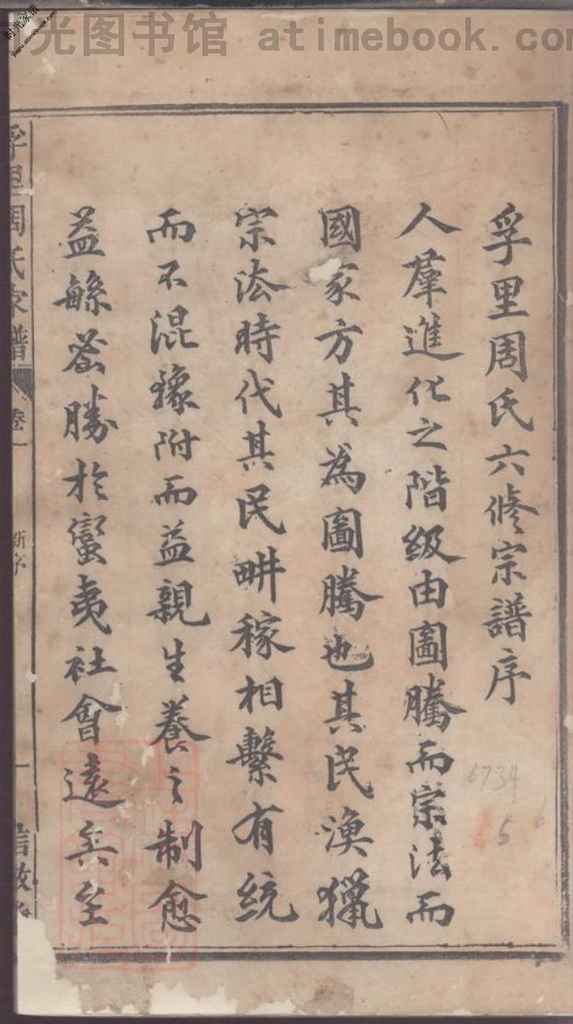 光图书馆 atimebook.com
孚里周氏六修宗譜序
人羣進化之階級由圖騰而宗法而
國家方其為圖騰也其民漁獵
宗法時代其民畊稼相繫有統
而不混豫附而益親生養之制愈
益緐荟勝於蠻夷社會遠矣至
孚里周氏家譜 卷一 新序 一
6734
5